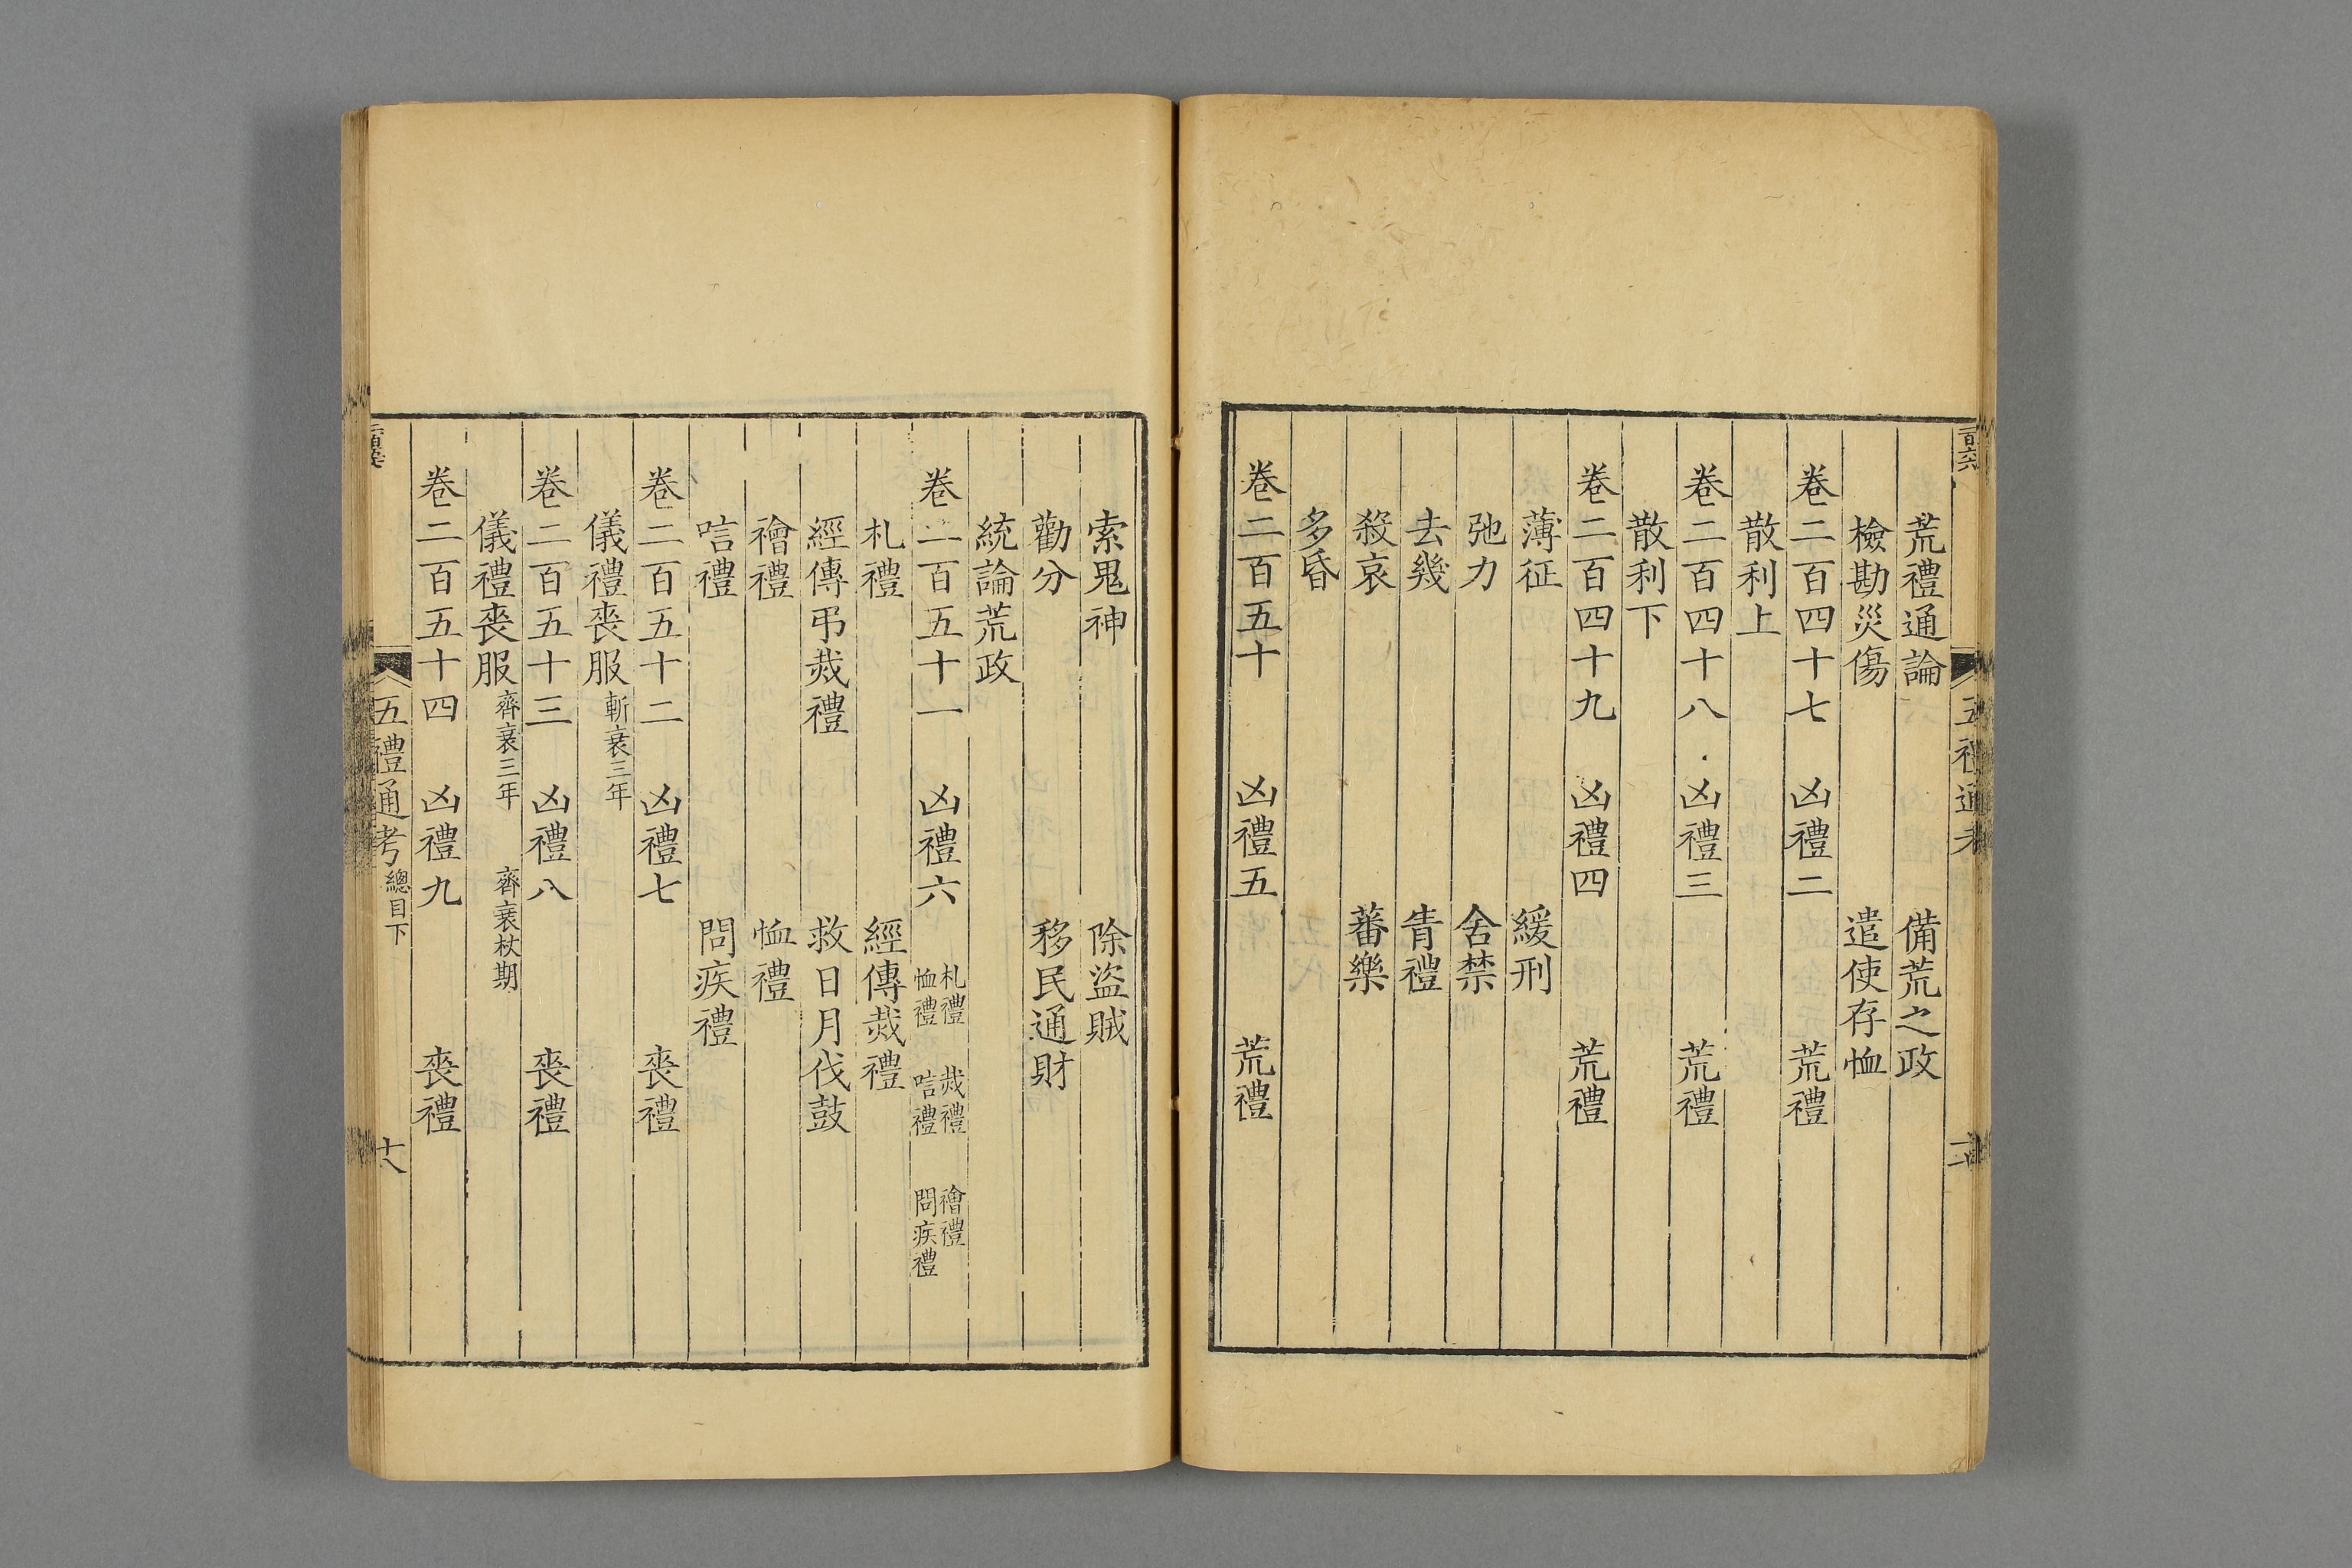 荒禮通論 備荒之政
檢勘災傷 遣使存恤
卷二百四十七 凶禮二 荒禮
散利上
卷二百四十八 凶禮三 荒禮
散利下
卷二百四十九 凶禮四 荒禮
薄征 緩刑
弛力 舍禁
去幾 眚禮
殺哀 蕃樂
多昏
卷二百五十 凶禮五 荒禮
索鬼神 除盜賊
勸分 移民通財
統論荒政
卷二百五十一 凶禮六 札禮 烖禮 禬禮
恤禮 唁禮 問疾禮
札禮 經傳烖禮
經傳弔烖禮 救日月伐鼓
禬禮 恤禮
唁禮 問疾禮
卷二百五十二 凶禮七 喪禮
儀禮喪服 斬衰三年
卷二百五十三 凶禮八 喪禮
儀禮喪服 齊衰三年 齊衰杖期
卷二百五十四 凶禮九 喪禮
五禮通考 總目下 十八